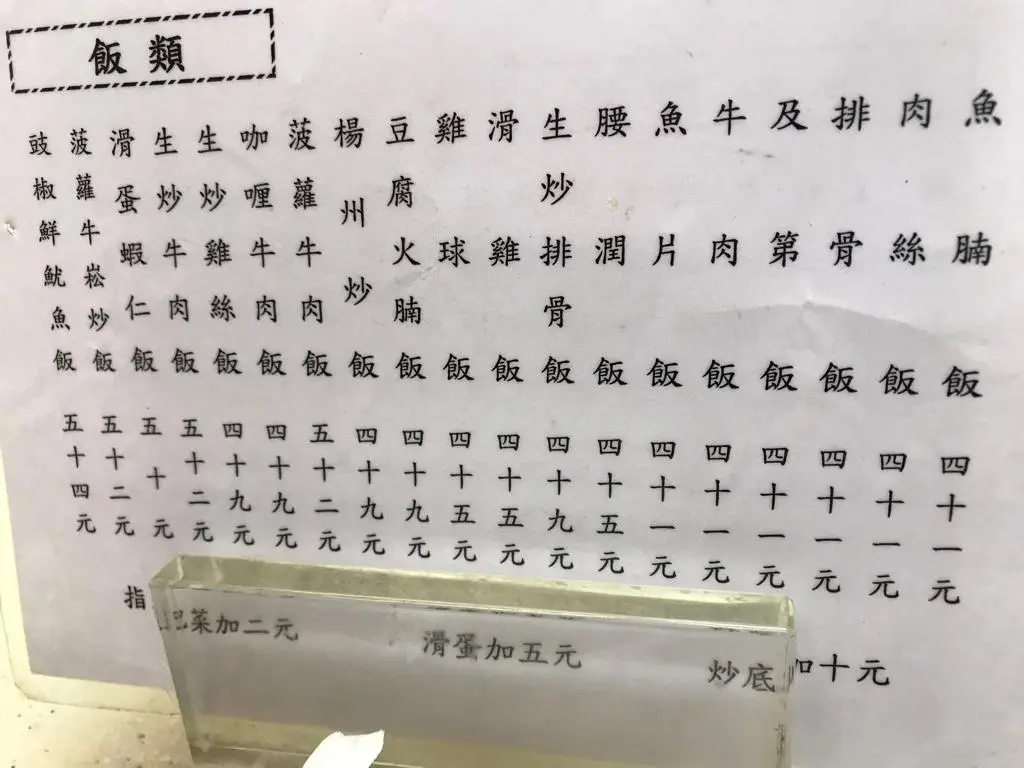 飯類
魚腩飯 四十一元
肉絲飯 四十一元
排骨飯 四十一元
及第飯 四十一元
牛肉飯 四十一元
魚片飯 四十一元
腰潤飯 四十五元
生炒排骨飯 四十九元
滑雞飯 四十五元
雞球飯 四十五元
豆腐火腩飯 四十九元
楊州炒飯 四十九元
菠蘿牛肉飯 五十二元
咖喱牛肉飯 四十九元
生炒雞絲飯 四十九元
生炒牛肉飯 五十二元
滑蛋蝦仁飯 五十元
菠蘿牛崧炒飯 五十二元
豉椒鮮魷魚飯 五十四元
指 菜加二元
滑蛋加五元
炒底加十元